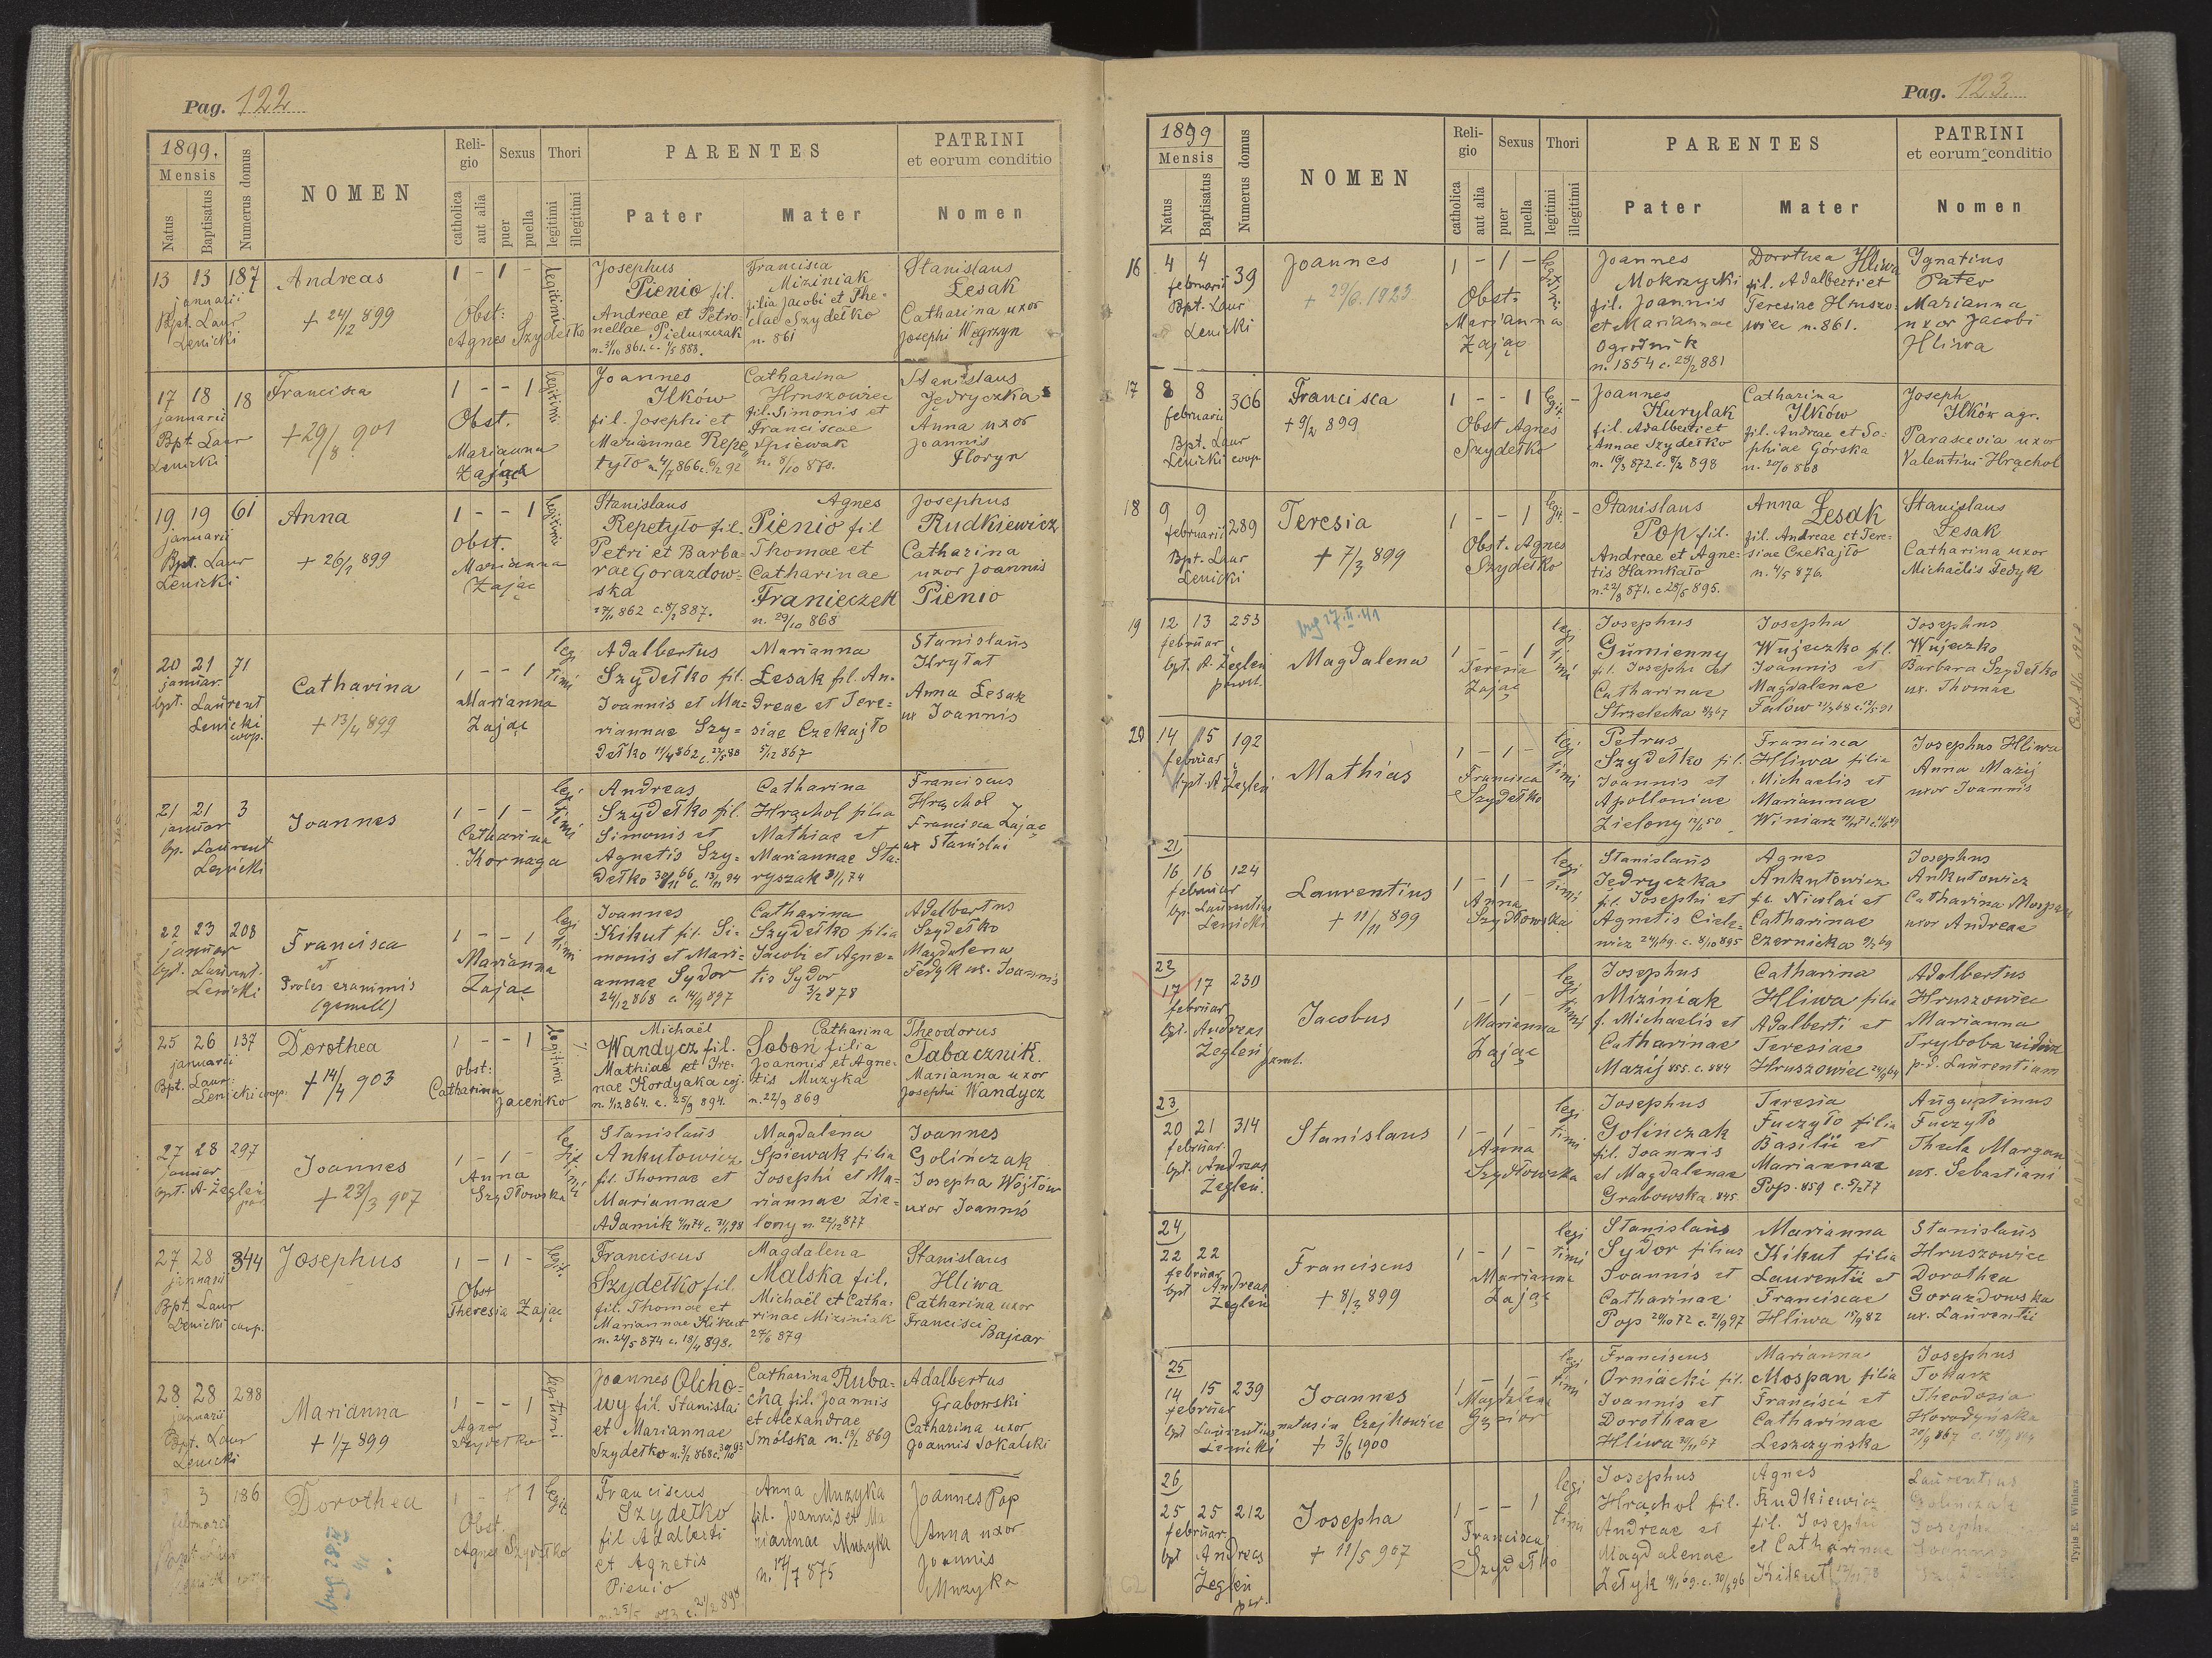 Pag. 122
1899.
Mensis
Natus
Baptisatus
Numerus domus
NOMEN
Religio
catholica
aut alia
Sexus
puer
puella
Thori
legitimi
illegitimi
PARENTES
Pater
Mater
PATRINI
et eorum conditio
Nomen
13 13 187
januarii
Bpt. Laur
Lenicki
Andreas
+ 24/12 899
1 - 1 -
Obst:
Agnes Szydełko
legitimi
Josephus
Pienio fil.
Andreae et Petro-
nellae Pieluszczak
n. 30/10 861. c. 1/5 888.
Francisca
Miziniak
filia Jacobi et The-
clae Szydełko
n. 861
Stanislaus
Łesak
Catharina uxor
Josephi Węgrzyn
17 18 18
januarii
Bpt. Laur
Lenicki
Francisca
+ 29/8 901
1 - - 1
Obst.
Marianna
Zając
legitimi
Joannes
Ilków
fil. Josephi et
Mariannae Repe
tyło n. 4/7 866 c. 6/2 92
Catharina
Hruszowiec
fil. Simonis et
Franciscae
Śpiewak
n. 8/10 870.
Stanislaus
Jędryczka
Anna uxor
Joannis
Floryn
19 19 61
januarii
Bpt. Laur
Lenicki
Anna
+ 26/1 899
1 - - 1
Obst.
Marianna
Zając
legitimi
Stanislaus
Repetyło fil.
Petri et Barba-
rae Gorazdow-
ska
27/11 862 c. 8/2 887.
Agnes
Pienio fil
Thomae et
Catharinae
Franieczek
n. 29/10 868
Josephus
Rudkiewicz
Catharina
uxor Joannis
Pienio
20 21 71
januar.
bpt. Laurent
Lenicki
coop.
Catharina
+ 13/4 899
1 - - 1
Marianna
Zając
legitimi
Adalbertus
Szydełko fil.
Joannis et Ma-
riannae Szy-
dełko 11/4 862 c. 27/5 88
Marianna
Łesak fil. An-
dreae et Tere-
siae Czekajło
5/12 867
Stanislaus
Kryłat
Anna Łesak
ux Joannis
21 21 3
januar
bp. Laurent
Lenicki
Joannes
1 - 1 -
Catharina
Kornaga
legitimi
Andreas
Szydełko fil.
Simonis et
Agnetis Szy-
dełko 30/11 66 c. 13/11 94
Catharina
Hrąchol filia
Mathiae et
Mariannae Sta-
ryszak 31/1 74
Franciscus
Hrąchol
Francisca Zając
ux Stanislai
22 23 208
januar
bpt. Laurent.
Lenicki
Francisca
et
Proles exanimis
(gemell)
1 - - 1
Marianna
Zając
legitimi
Joannes
Kikut fil. Si-
monis et Mari-
annae Sydor
24/12 868 c. 14/9 897
Catharina
Szydełko filia
Jacobi et Agne-
tis Sydor
3/2 878
Adalbertus
Szydełko
Magdalena
Fedyk ux. Joannis
25 26 137
januarii
Bpt. Laur:
Lenicki coop.
Dorothea
+ 14/4 903
1 - - 1
Obst:
Catharina
Jaceńko
legitimi
Michaël
Wandycz fil.
Mathiae et Ire-
nae Kordyaka coj.
n. 1/12 864. c. 25/9 894.
Catharina
Soboń filia
Joannis et Agne-
tis Muzyka
n. 22/9 869
Theodorus
Tabacznik.
Marianna uxor
Josephi Wandycz
27 28 297
januar
bpt. A. Żegleń
Joannes
+ 23/3 907
1 - 1 -
Anna
Szydłowska
legitimi
Stanislaus
Ankutowicz
fil. Thomae et
Mariannae
Adamik 4/11 74 c. 31/1 98
Magdalena
Śpiewak filia
Josephi et Ma-
riannae Zie-
lony n. 22/12 877
Joannes
Golińczak
Josepha Wójtów
uxor Joannis
27 28 344
januarii
Bpt. Laur
Lenicki coop.
Josephus
1 - 1 -
Obst
Theresia Zając
legit.
Franciscus
Szydełko fil.
fil. Thomae et
Mariannae Kikut
n. 24/5 874 c. 18/4 898.
Magdalena
Malska fil.
Michaël et Catha-
rinae Miziniak
27/6 879
Stanislaus
Hliwa
Catharina uxor
Francisci
Bajcar
28 28 298
januarii
Bpt. Laur
Lenicki
Marianna
+ 1/7 899
1 - - 1
Agnes
Szydełko
legitimi
Joannes Olcho-
wy fil. Stanislai
et Mariannae
Szydełko n. 3/2 868
Catharina Ruba-
cka fil. Joannis
et Alexandrae
Smólska n. 13/2 869
Adalbertus
Grabowski
Catharina uxor
Joannis Sokalski
3 186
februarii
Dorothea
1
Obst.
Agnes Szydełko
legit.
Franciscus
Szydełko
fil Adalberti
et Agnetis
Pienio
n. 25/5 873 c. 21/2 898
Anna Muzyka
fil. Joannis et Ma
riannae Muzyka
n. 14/7 875
Joannes Pop
Anna uxor
Joannis
Muzyka
Pag. 123.
1899
Mensis
Natus
Baptisatus
Numerus domus
NOMEN
Religio
catholica
aut alia
Sexus
puer
puella
Thori
legitimi
illegitimi
PARENTES
Pater
Mater
PATRINI
et eorum conditio
Nomen
16 4 4 39
februarii
Bpt. Laur
Lenicki
Joannes
1 - 1 -
Obst:
Marianna
Zając
legitimi
Joannes
Mokrzycki
fil. Joannis
et Mariannae
Ogrodnik
n. 1854 c. 28/2 881
Dorothea Hliwa
fil. Adalberti et
Teresiae Hruszo-
wiec n. 861.
Ignatius
Pater
Marianna
uxor Jacobi
Hliwa
17 8 8 306
februarii
Bpt. Laur
Lenicki coop
Francisca
+ 9/2 899
1 - - 1
Obst Agnes
Szydełko
legit. -
Joannes
Kurylak
fil. Adalberti et
Annae Szydełko
n. 16/3 872 c. 8/2 898
Catharina
Ilków
fil. Andreae et So-
phiae Górska
n. 20/6 868
Joseph
Ilków agr.
Parascevia uxor
Valentini Hrąchol
18 9 9 289
februarii
Bpt. Laur
Lenicki
Teresia
+ 7/3 899
1 - - 1
Obst. Agnes
Szydełko
legit. -
Stanislaus
Pop fil.
Andreae et Agne-
tis Hamkało
n. 22/8 871. c 28/5 895.
Anna Łesak
fil. Andreae et Tere-
siae Czekajło
n. 4/5 876.
Stanislaus
Łesak
Catharina uxor
Michaëlis Fedyk
19 12 13 253
februar
bpt. A. Żegleń
Magdalena
1 - - 1
Teresia
Zając
legitimi
Josephus
Gumienny
fil. Josephi et
Catharinae
Strzelecka 8/3 67
Josepha
Wujeczko fil.
Joannis et
Magdalenae
Falów
Josephus
Wujeczko
Barbara Szydełko
ux. Thomae
20 14 15 192
februar
bpt. A Żegleń
Mathias
1 - 1 -
Francisca
Szydełko
legitimi
Petrus
Szydełko fil.
Joannis et
Apolloniae
Zielony
Francisca
Hliwa filia
Michaelis et
Mariannae
Winiarz
Josephus Hliwa
Anna Mazij
uxor Joannis
21
16 16 124
februar
bp. Laurentius
Lenicki
Laurentius
+ 11/11 899
1 - 1 -
Anna
Szydłowska
legitimi
Stanislaus
Jędryczka
fil. Josephi et
Agnetis Ciele-
wicz 24/1 69. c. 8/10 895
Agnes
Ankutowicz
fil. Nicolai et
Catharinae
Czernicka 9/2 69
Josephus
Ankutowicz
Catharina Mospan
uxor Andreae
22
17 17 230
februar
bpt. Andreas
Żegleń
Jacobus
1 - 1 -
Marianna
Zając
legitimi
Josephus
Miziniak
f. Michaelis et
Catharinae
Mazij 855. c. 884
Catharina
Hliwa filia
Adalberti et
Teresiae
Hruszowiec 24/9 64
Adalbertus
Hruszowiec
Marianna
Tryboba vidua
p. d. Laurentium
23
20 21 314
februar.
bpt. Andreas
Żegleń.
Stanislaus
1 - 1 -
Anna
Szydłowska
legitimi
Josephus
Golińczak
fil. Joannis
et Magdalenae
Grabowska. 845
Teresia
Fuczyło filia
Basilii et
Mariannae
Pop. 859 c. 5/2 77
Augustinus
Fuczyło
Thecla Margan
ux. Sebastiani
24
22 22
februar
bpt Andreas
Żegleń
Franciscus
+ 8/3 899
1 - 1 -
Marianna
Zając
legitimi
Stanislaus
Sydor filius
Joannis et
Catharinae
Pop 20/10 72 c. 21/9 97
Marianna
Kikut filia
Laurentii et
Franciscae
Hliwa 15/9 82
Stanislaus
Hruszowiec
Dorothea
Gorazdowska
ux. Laurentii
25
14 15 239
februar
bpt Laurentius
Lenicki
Joannes
natus in Czajkowice
+ 3/6 1900
1 - 1 -
Magdalena
Gąsior
legitimi
Franciscus
Orniacki fil.
Joannis et
Dorotheae
Hliwa 30/11 67
Marianna
Mospan filia
Francisci et
Catharinae
Leszczyńska
Josephus
Theodosia
Horodyńska
26
25 25 212
februar
bpt Andreas
Żegleń
Josepha
+ 11/5 907
1 - - 1
Francisca
Szydełko
legitimi
Josephus
Hrąchol fil.
Andreae et
Magdalenae
Żełyk
Agnes
Rudkiewicz
fil. Josephi
et Catharinae
Kikut
Laurentius
Golińczak
Josepha
Joannis
Typis E. Winiarz